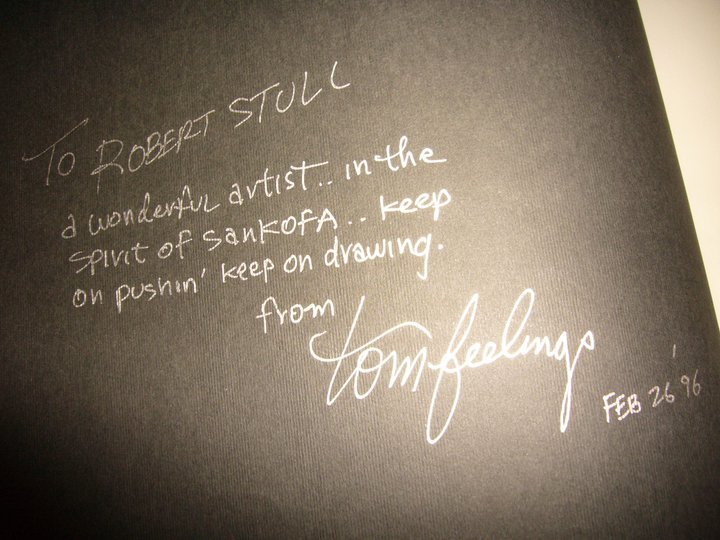 TO ROBERT STULL
a wonderful artist.. in the
spirit of SANKOFA.. keep
on pushin' keep on drawing.
from
tom feelings
FEB 26 '96